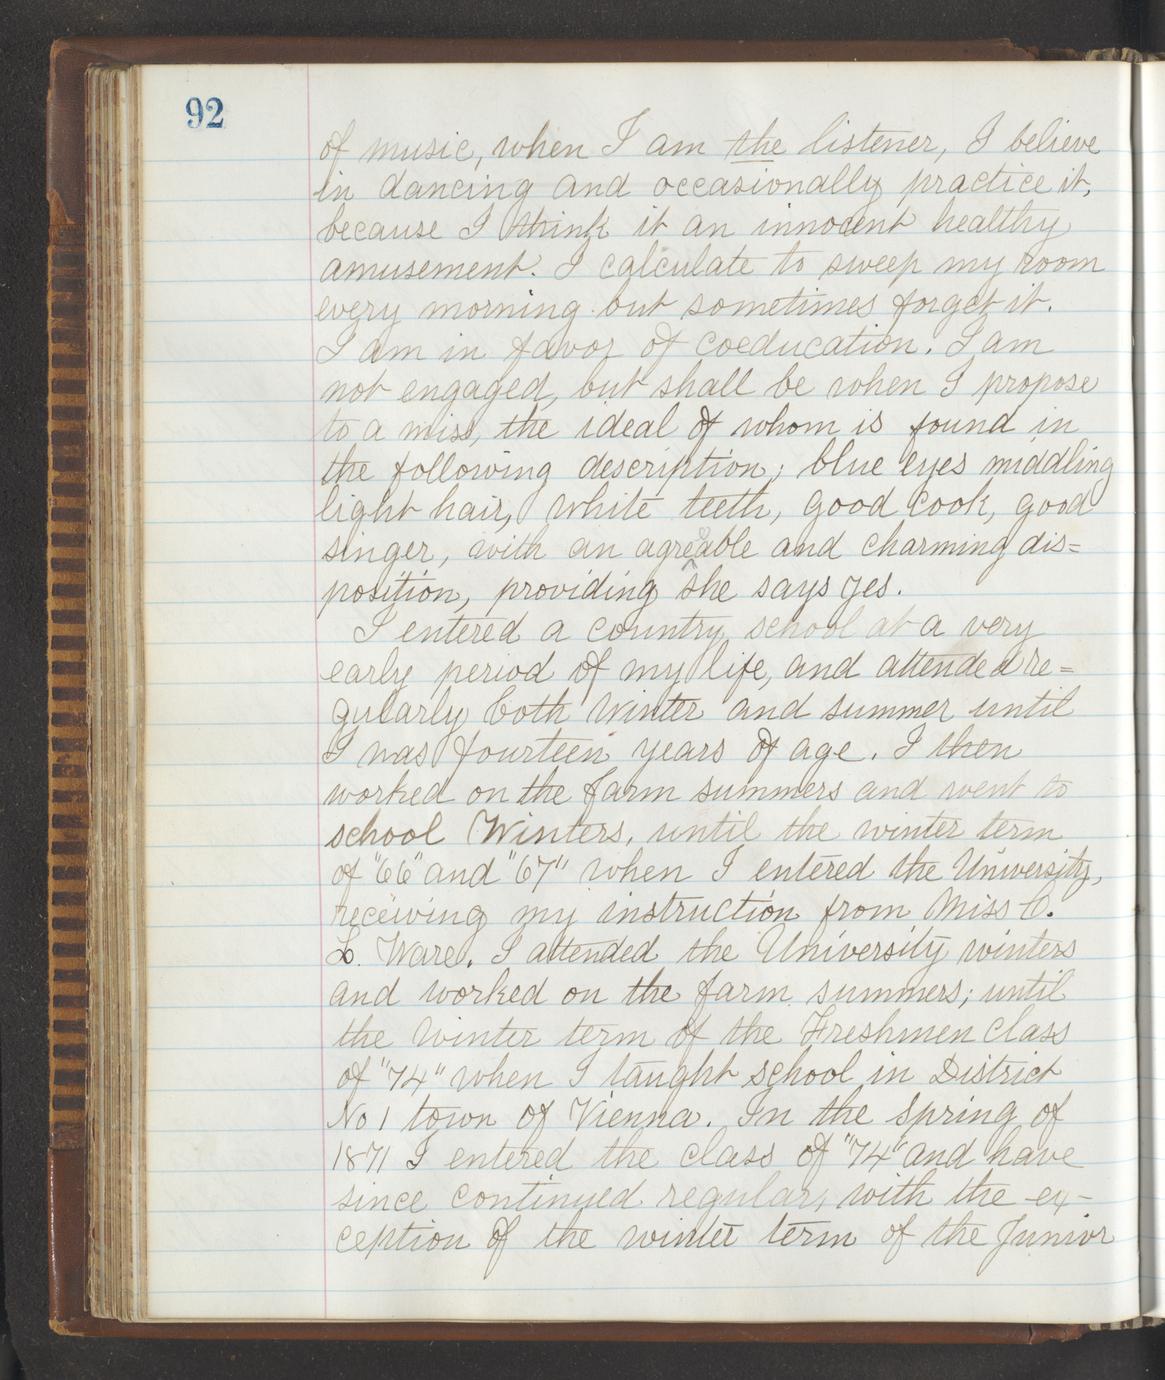 92
of music, when I am the listener, I believe
in dancing and occasionally practice it,
because I think it an innocent healthy
amusement. I calculate to sweep my room
every morning but sometimes forget it.
I am in favor of coeducation. I am
not engaged, but shall be when I propose
to a miss, the ideal of whom is found in
the following description; blue eyes middling
light hair, white teeth, good cook, good
singer, with an agreeable and charming dis=
position, providing she says yes.
I entered a country school at a very
early period of my life, and attended re=
gularly both winter and summer until
I was fourteen years of age. I then
worked on the farm summers and went to
school Winters, until the winter term
of "66" and "67" when I entered the University,
receiving my instruction from Miss
L. Ware. I attended the University winters
and worked on the farm summers; until
the winter term of the Freshmen class
of "74" when I taught school in District
No 1 town of Vienna. In the Spring of
1871 I entered the class of "74" and have
since continued regular, with the ex-
ception of the winter term of the Junior